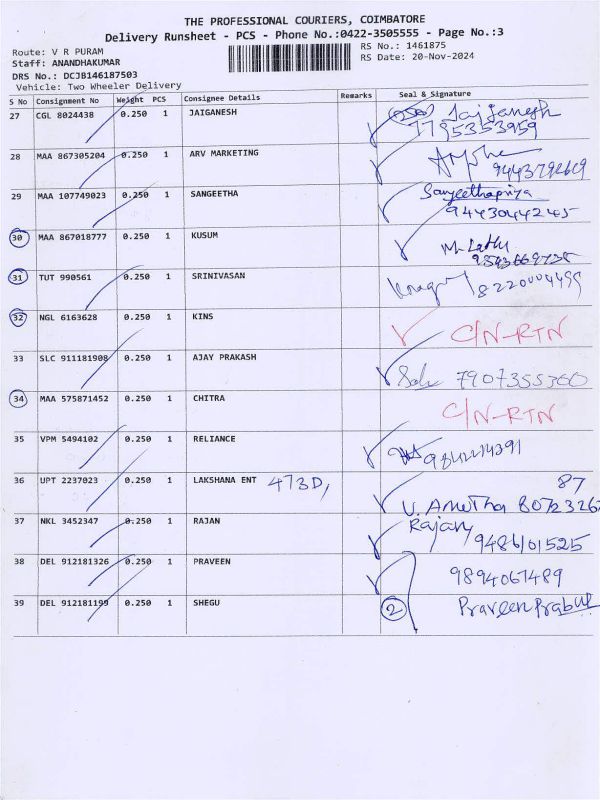 THE PROFESSIONAL COURIERS, COIMBATORE
Delivery Runsheet - PCS - Phone No.:0422-3505555 - Page No.:3
Route: V R PURAM
RS No.: 1461875
Staff: ANANDHAKUMAR
RS Date: 20-Nov-2024
DRS No.: DCJB146187503
Vehicle: Two Wheeler Delivery
S No Consignment No Weight PCS Consignee Details Remarks Seal & Signature
27 CGL 8024438 0.250 1 JAIGANESH Jaiganesh
7795353959
28 MAA 867305204 0.250 1 ARV MARKETING
29 MAA 107749023 0.250 1 SANGEETHA Sangeethapriya
9443044245
30 MAA 867018777 0.250 1 KUSUM
31 TUT 990561 0.250 1 SRINIVASAN 8220004499
32 NGL 6163628 0.250 1 KINS C/N-RTN
33 SLC 911181908 0.250 1 AJAY PRAKASH 7907355360
34 MAA 575871452 0.250 1 CHITRA C/N-RTN
35 VPM 5494102 0.250 1 RELIANCE
36 UPT 2237023 0.250 1 LAKSHANA ENT 473D, 87
V. Ametha 8072326
37 NKL 3452347 0.250 1 RAJAN Rajan
9486101525
38 DEL 912181326 0.250 1 PRAVEEN 9894067489
39 DEL 912181199 0.250 1 SHEGU 2 Praveen Prabu